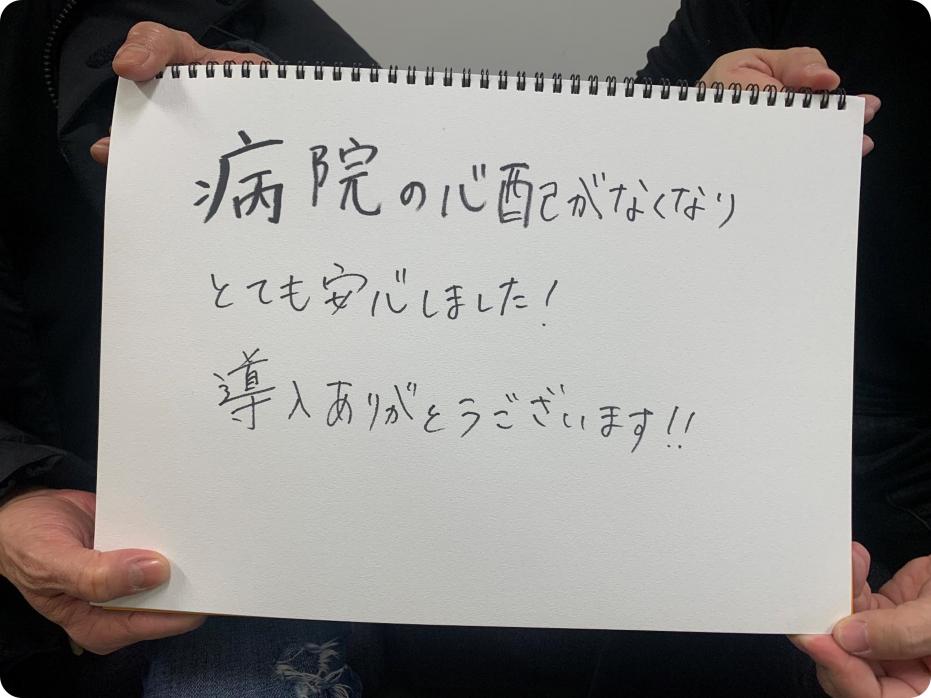 病院の心配がなくなり
とても安心しました！
導入ありがとうございます！！